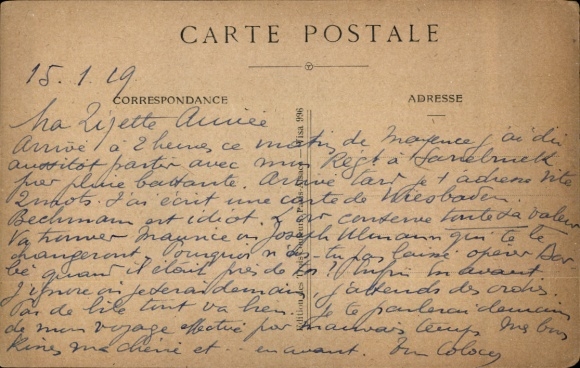 CARTE POSTALE
15.1.19
CORRESPONDANCE
ADRESSE
Ma Lizette Aimée
Arrivé à 2 heures ce matin de Mayence j'ai dû
aussitôt partir avec mon Regt à Sarrebruck
par pluie battante. Arrivé tard je t'adresse vite
2 mots. J'ai écrit une carte de Wiesbaden.
Bechmann est idiot. L'or conserve toute sa valeur
Va trouver Maurice ou Joseph Ulmann qui te le
changeront. Pourquoi n'as-tu pas laissé opérer
bé quand il était près de toi? Enfin en avant
J'ignore où je serai demain. J'attends des ordres.
Pas de bile tout va bien. Je te parlerai demain
de mon voyage effectué par mauvais temps. Mes
ma chérie et en avant. Ton
Visa 996
Edition des